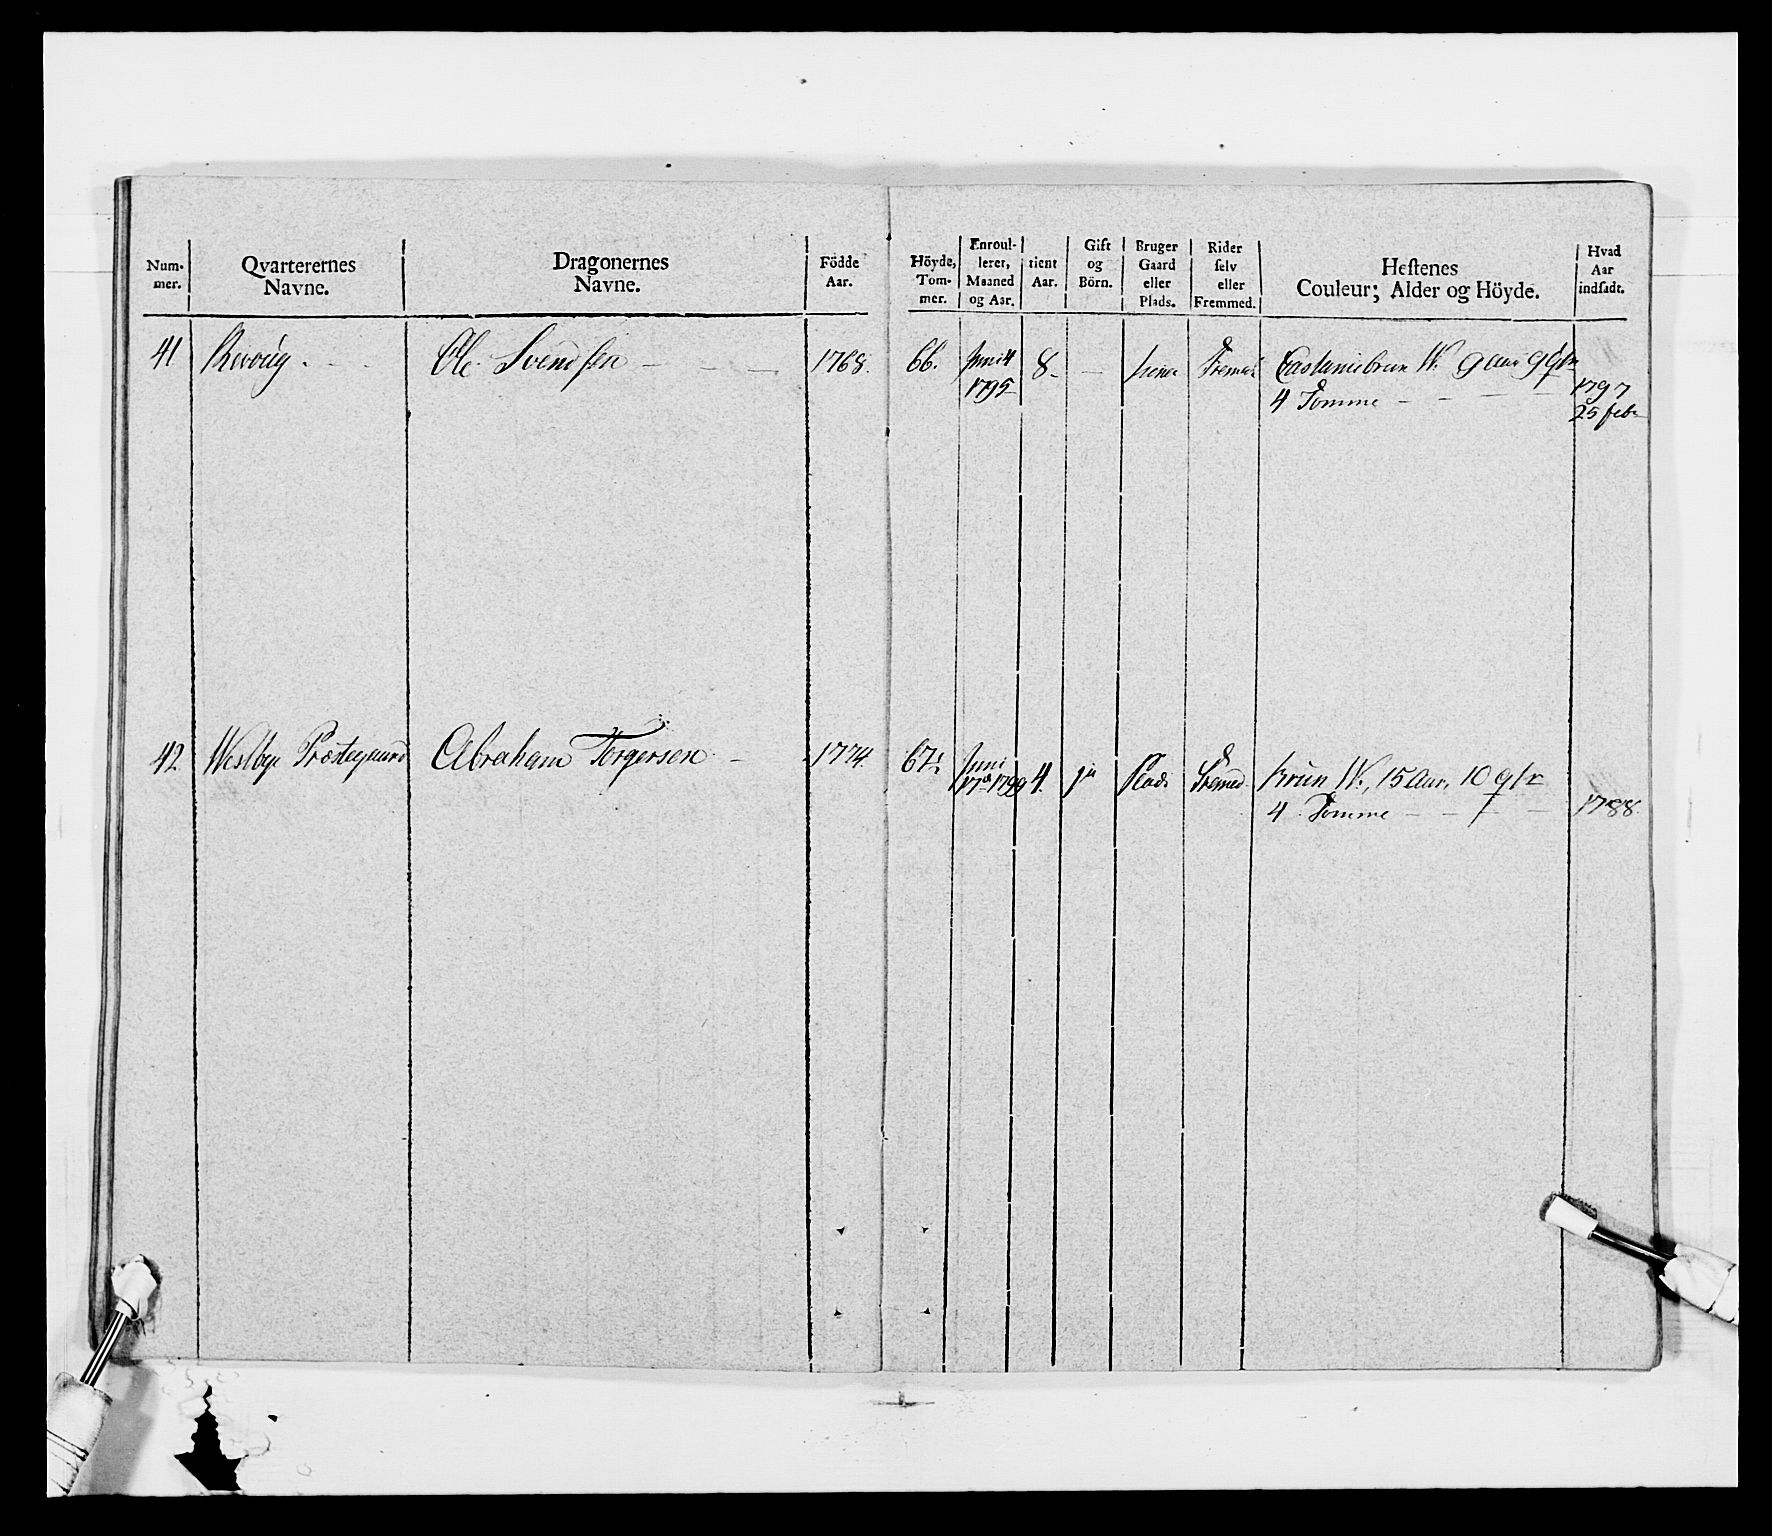 Num- mer.
Qvarterernes Navne.
Dragonernes Navne.
Födde Aar.
Höyde, Tom- mer.
Enroul- leret, Maaned og Aar.
tient Aar.
Gift og Börn.
Bruger Gaard eller Plads.
Rider selv eller Fremmed.
Hestenes Couleur; Alder og Höyde.
Hvad Aar indsadt.
41 Ole Svendsen — — — 1768. 66. Juni 1795 8 — — Castaniebrun W. 9 aar 9 qtr
4 Tomme — — — — 1797
25 febr
42 Westbye Præstegaard Abraham Torgersen — 1774. 67. Juni 1799 4. ja Plads Fremed. brun W., 15 Aar, 10 qtr
4 Tomme — — — — 1788.